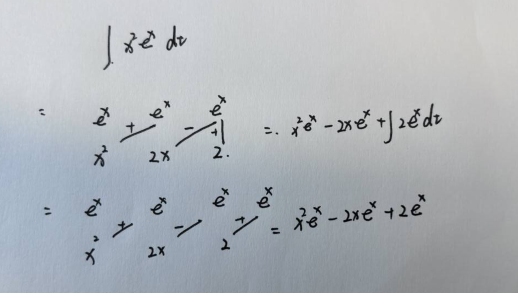 ∫ x² eˣ dx
= eˣ + eˣ - eˣ
x² 2x + 2. =. x²eˣ - 2xeˣ + ∫ 2eˣ dx
= eˣ + eˣ - eˣ + eˣ
x² 2x 2 = x²eˣ - 2xeˣ + 2eˣ